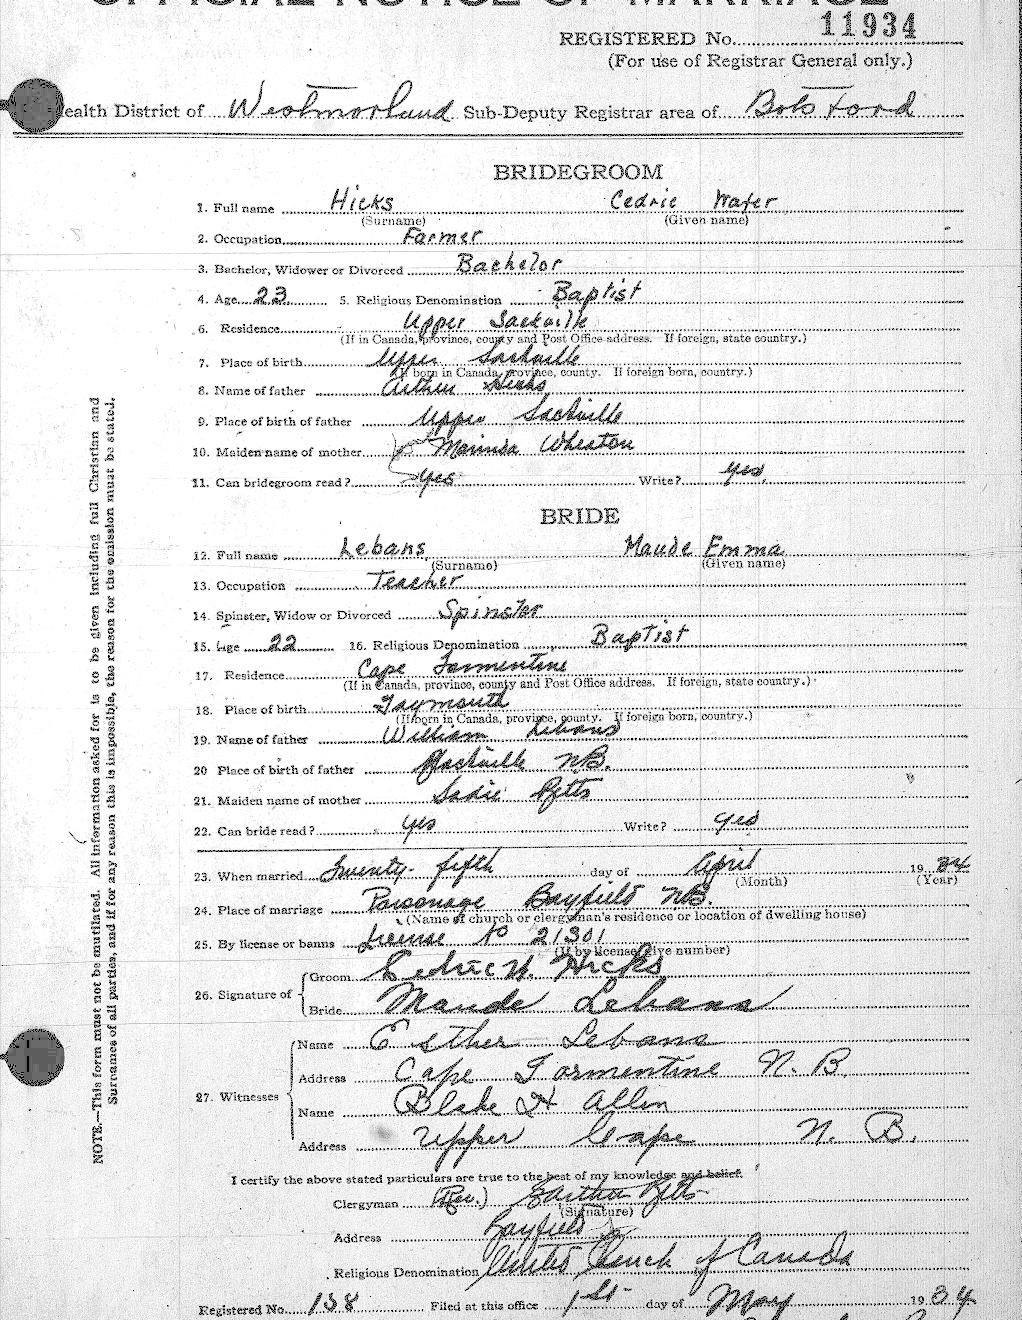 OFFICIAL NOTICE OF MARRIAGE
REGISTERED No. 11934
(For use of Registrar General only.)
ealth District of Westmorland Sub-Deputy Registrar area of Botsford
BRIDEGROOM
1. Full name Hicks Cedric
(Surname) (Given name)
2. Occupation Farmer
3. Bachelor, Widower or Divorced Bachelor
4. Age 23 5. Religious Denomination Baptist
6. Residence Upper Sackville
(If in Canada, province, county and Post Office address. If foreign, state country.)
7. Place of birth Upper Sackville
(If born in Canada, province, county. If foreign born, country.)
8. Name of father Arthur Hicks
9. Place of birth of father Upper Sackville
10. Maiden name of mother Wheaton
11. Can bridegroom read? Yes Write? yes.
BRIDE
12. Full name Lebans Maude Emma
(Surname) (Given name)
13. Occupation Teacher
14. Spinster, Widow or Divorced Spinster
15. Age 22 16. Religious Denomination Baptist
17. Residence Cape Tormentine
(If in Canada, province, county and Post Office address. If foreign, state country.)
18. Place of birth Taymouth
(If born in Canada, province, county. If foreign born, country.)
19. Name of father William Lebans
20 Place of birth of father Sackville NB.
21. Maiden name of mother Sadie Betts
22. Can bride read? yes Write? yes
23. When married Twenty-fifth day of April 1934
(Month) (Year)
24. Place of marriage Parsonage Bayfield NB.
(Name of church or clergyman's residence or location of dwelling house)
25. By license or banns License No 21301
(If by license, give number)
26. Signature of
Groom Cedric W. Hicks
Bride Maude Lebans
27. Witnesses
Name Esther Lebans
Address Cape Tormentine N. B.
Name Blake H Allen
Address Upper Cape N. B.
I certify the above stated particulars are true to the best of my knowledge and belief.
Clergyman (Rev.) Betts
(Signature)
Address Bayfield
Religious Denomination United Church of Canada
Registered No. 138 Filed at this office 1st day of May 1934
NOTE.—This form must not be mutilated. All information asked for is to be given including full Christian and
Surnames of all parties, and if for any reason this is impossible, the reason for the omission must be stated.